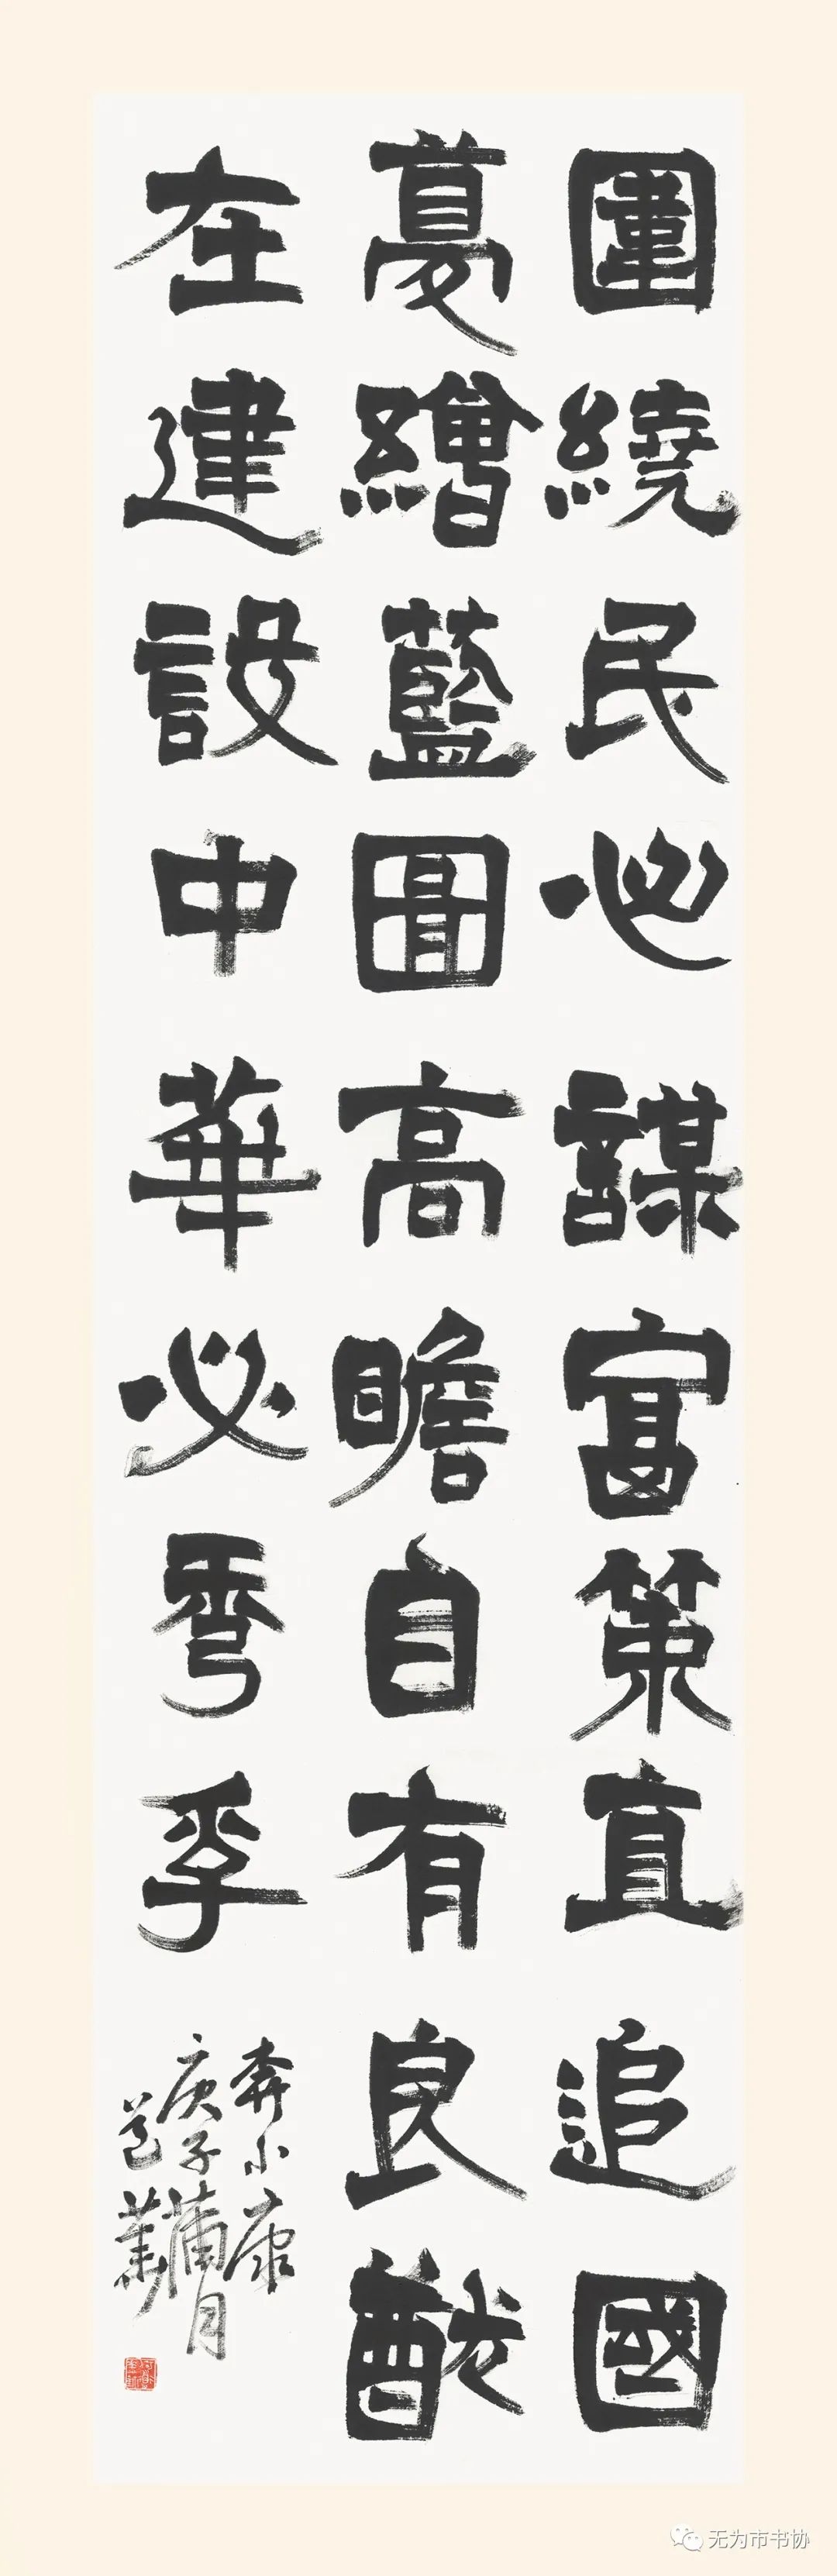 圍繞民心謀富策直追國
夢繪藍圖高瞻自有良猷
在建設中華必孚
奔小康
庚子蒲月
无为市书协